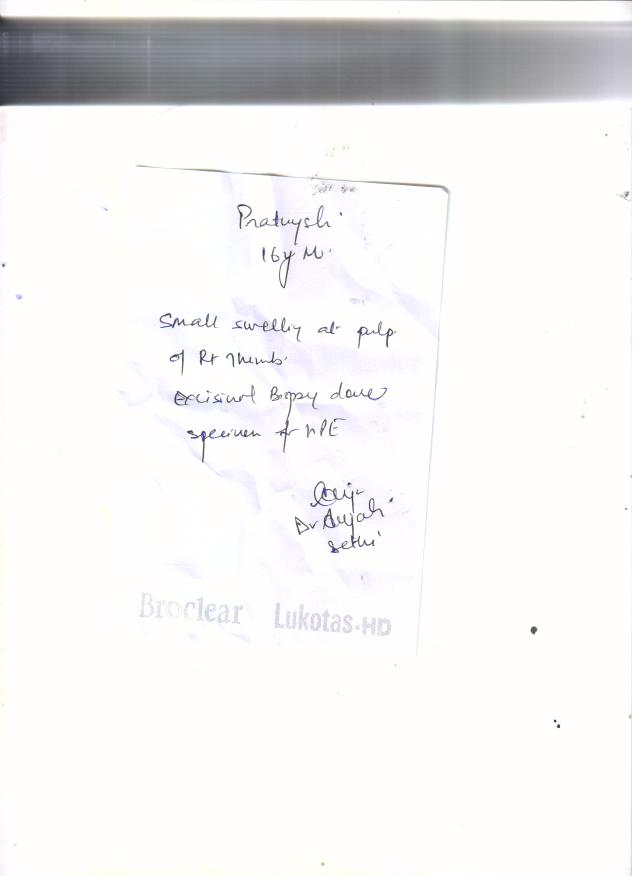 Pratuysh
16y M.
Small swelling at pulp
of Rt Thumb.
Excisinol Biopsy done
specimen for HPE
Dr Anjali
Sethi
Broclear Lukotas-HD